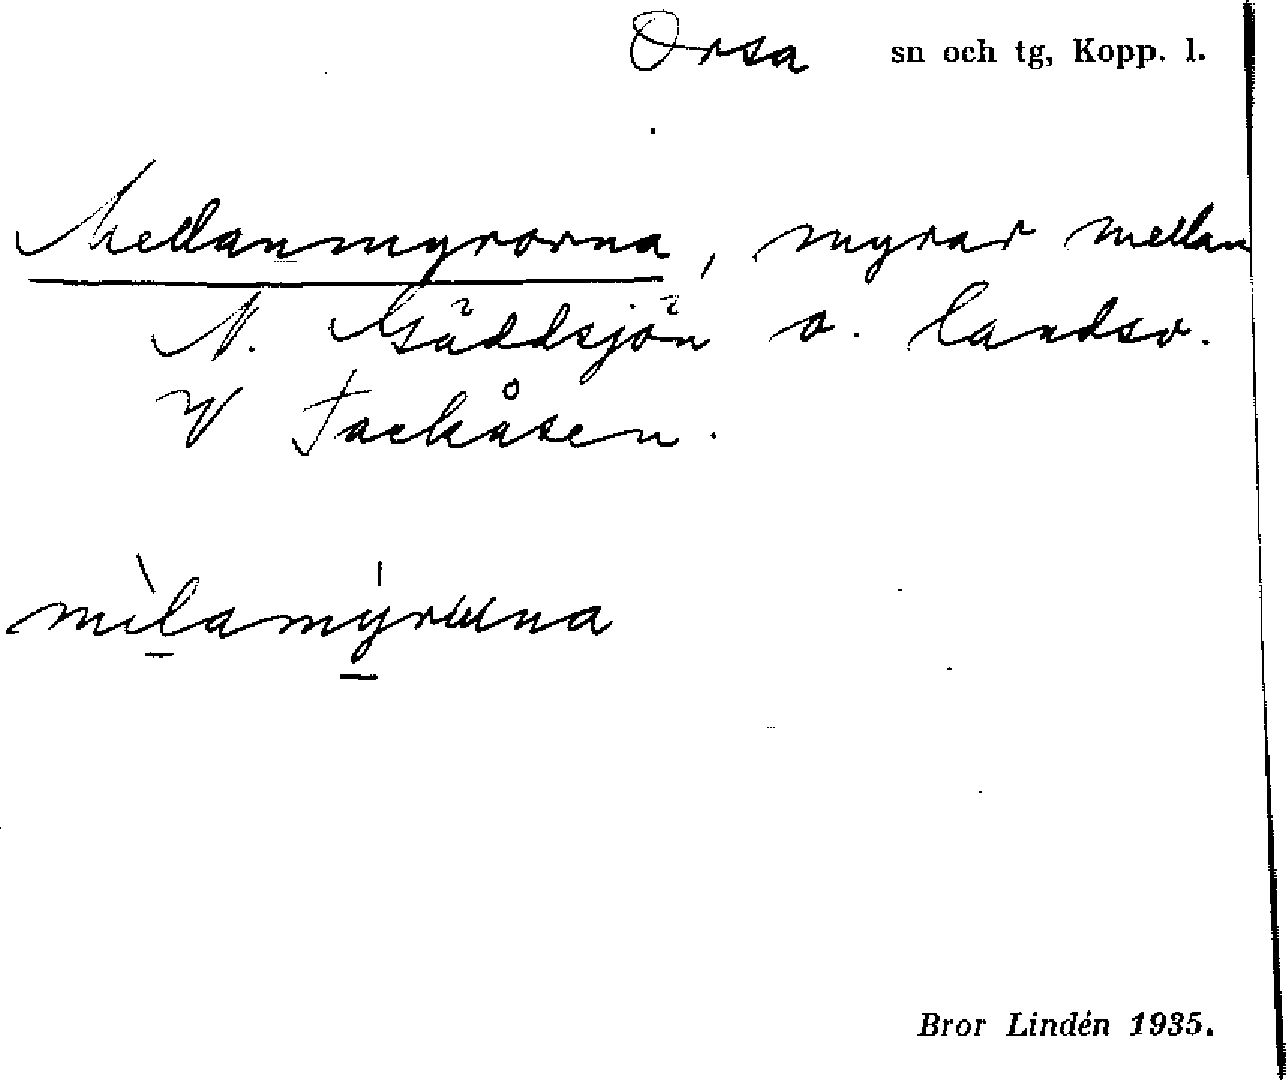 Orsa sn och tg, Kopp. l.
Mellanmyrorna, myrar mellan
N. Gäddsjön o. landsv.
V Tackåsen.
mìlamýrwna
Bror Lindén 1935.